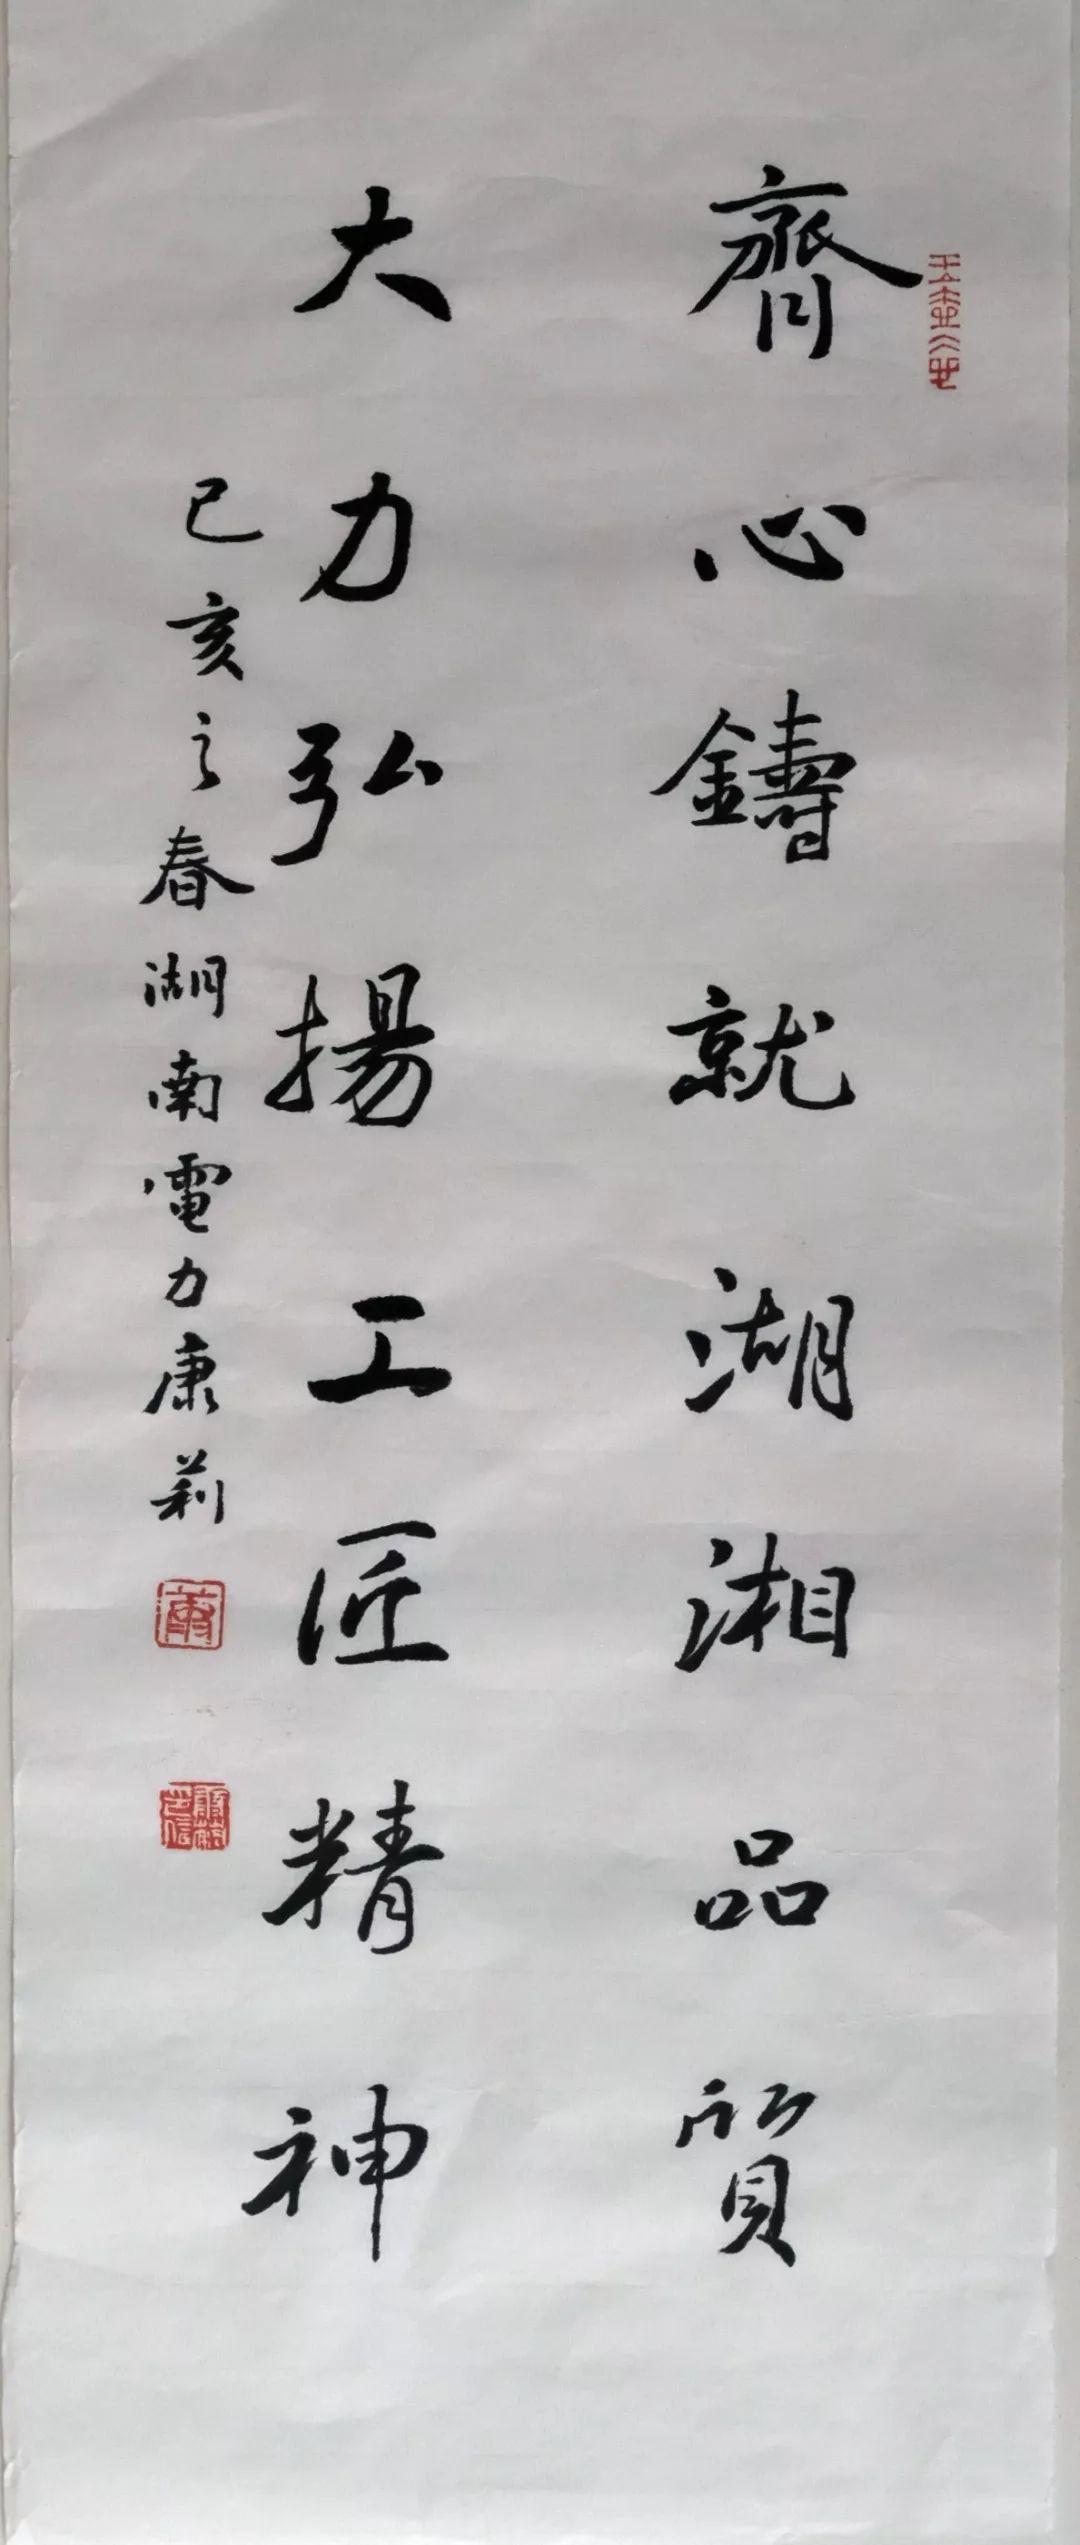 齊心鑄就湖湘品質
大力弘揚工匠精神
己亥之春湖南電力康莉